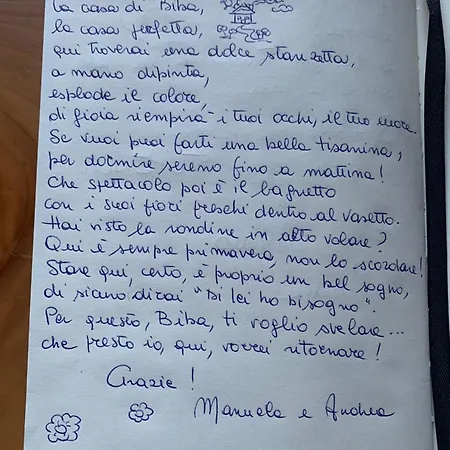 la casa di Biba,
la casa perfetta,
qui troverai una dolce stanzetta,
a mano dipinta,
esplode il colore,
di gioia riempirà i tuoi occhi, il tuo cuore.
Se vuoi puoi farti una bella tisanina,
per dormire sereno fino a mattina!
Che spettacolo poi è il bagnetto
con i suoi fiori freschi dentro al vasetto.
Hai visto la rondine in alto volare?
Qui è sempre primavera, non lo scordare!
Stare qui, certo, è proprio un bel sogno,
di siano dirai "Di lei ho bisogno".
Per questo, Biba, ti voglio svelare...
che presto io, qui, vorrei ritornare!
Grazie!
Manuela e Andrea